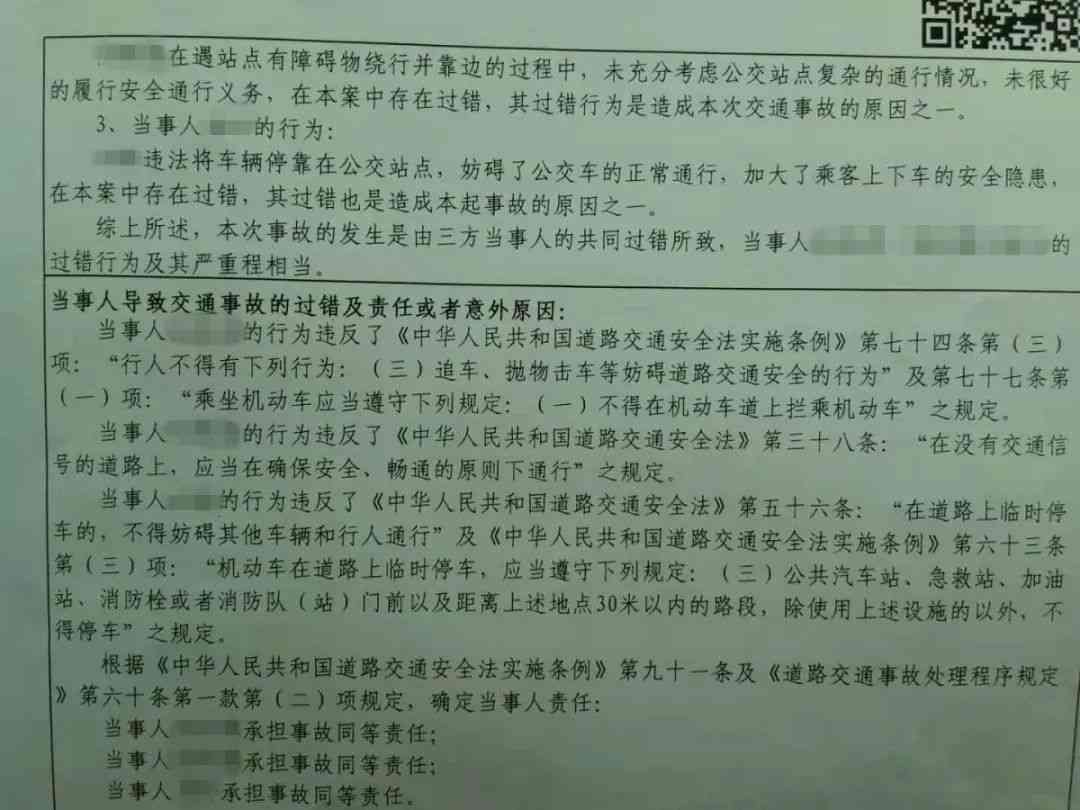 在遇站点有障碍物绕行并靠边的过程中，未充分考虑公交站点复杂的通行情况，未很好
的履行安全通行义务，在本案中存在过错，其过错行为是造成本次交通事故的原因之一。
3、当事人 的行为：
违法将车辆停靠在公交站点，妨碍了公交车的正常通行，加大了乘客上下车的安全隐患，
在本案中存在过错，其过错也是造成本起事故的原因之一。
综上所述，本次事故的发生是由三方当事人的共同过错所致，当事人 的
过错行为及其严重程相当。
当事人导致交通事故的过错及责任或者意外原因：
当事人 的行为违反了《中华人民共和国道路交通安全法实施条例》第七十四条第（三）
项：“行人不得有下列行为：（三）追车、抛物击车等妨碍道路交通安全的行为”及第七十七条第
（一）项：“乘坐机动车应当遵守下列规定：（一）不得在机动车道上拦乘机动车”之规定。
当事人 的行为违反了《中华人民共和国道路交通安全法》第三十八条：“在没有交通信
号的道路上，应当在确保安全、畅通的原则下通行”之规定。
当事人 的行为违反了《中华人民共和国道路交通安全法》第五十六条：“在道路上临时停
车的，不得妨碍其他车辆和行人通行”及《中华人民共和国道路交通安全法实施条例》第六十三条
第（三）项：“机动车在道路上临时停车，应当遵守下列规定：（三）公共汽车站、急救站、加油
站、消防栓或者消防队（站）门前以及距离上述地点30米以内的路段，除使用上述设施的以外，不
得停车”之规定。
根据《中华人民共和国道路交通安全法实施条例》第九十一条及《道路交通事故处理程序规定
》第六十条第一款第（二）项规定，确定当事人责任：
当事人 承担事故同等责任；
当事人 承担事故同等责任；
当事人 承担事故同等责任。